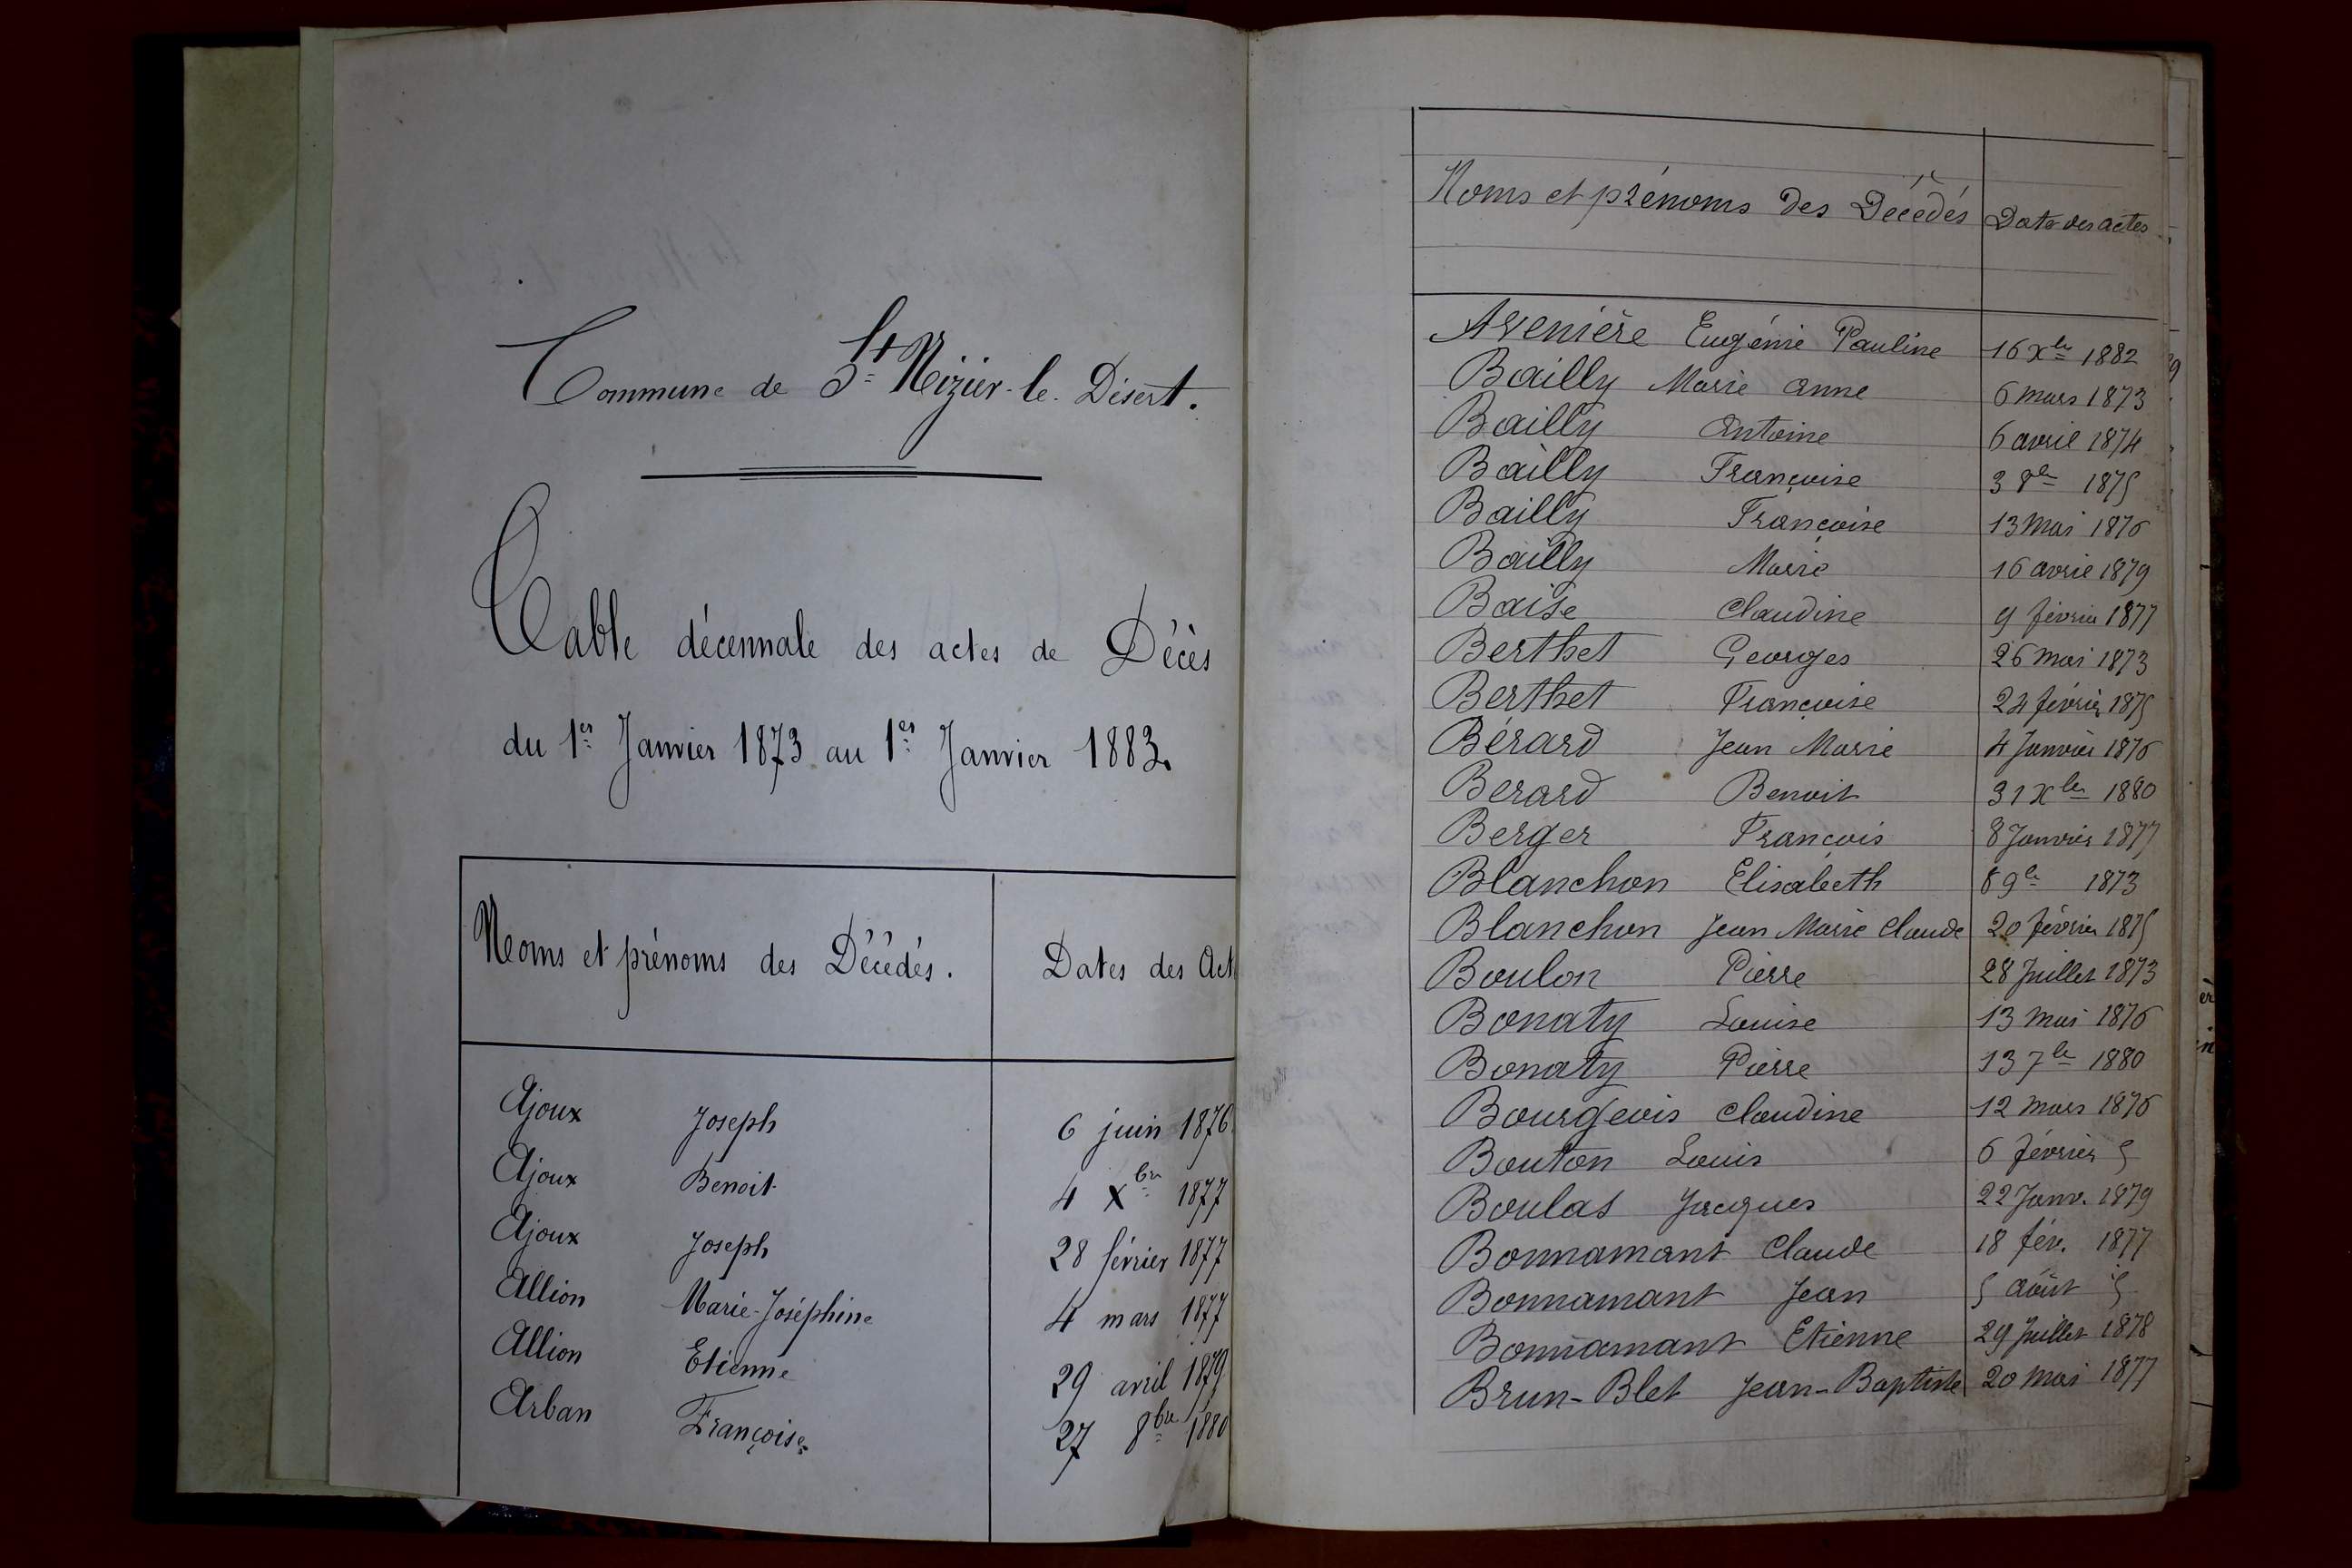 Commune de St Nizier-le-Désert.
Table décennale des actes de Décès
du 1er Janvier 1873 au 1er Janvier 1883.
Noms et prénoms des Décédés. Dates des Act
Ajoux Joseph 6 juin 1876
Ajoux Benoit 4 Xbre 1877
Ajoux Joseph 28 février 1877
Allion Marie-Joséphine 4 mars 1877
Allion Etienne 29 avril 1879
Arban Françoise 27 8bre 1880
Noms et prénoms des Décédés Date des actes
Avenière Eugénie Pauline 16 Xbre 1882
Bailly Marie Anne 6 mars 1873
Bailly Antoine 6 avril 1874
Bailly Françoise 3 8bre 1875
Bailly Françoise 13 Mai 1876
Bailly Marie 16 avril 1879
Baise Claudine 9 février 1877
Berthet Georges 26 Mai 1873
Berthet Françoise 24 février 1875
Bérard Jean Marie 4 Janvier 1876
Berard Benoit 31 Xbre 1880
Berger François 8 Janvier 1877
Blanchon Elisabeth 8 9bre 1873
Blanchon Jean Marie Claude 20 février 1875
Boulon Pierre 28 Juillet 1873
Bonaty Louise 13 mai 1876
Bonaty Pierre 13 7bre 1880
Bourgeois Claudine 12 mars 1876
Bouton Louis 6 février
Boulas Jacques 22 Janv. 1879
Bonnamant Claude 18 fév. 1877
Bonnamant Jean 5 août
Bonnamant Etienne 29 Juillet 1878
Brun-Blet Jean-Baptiste 20 Mai 1877